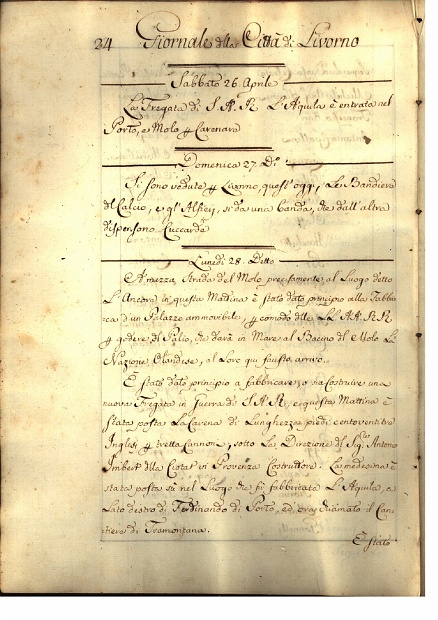 24 Giornale della Città di Livorno
Sabbato 26. Aprile
La Fregata di S. A. R. L'Aquila è entrata nel
Porto, e Molo p Carenare
Domenica 27. Do
Si sono vedute p Livorno quest'oggi, le Bandiere
del Calcio, e gl'Alfieri, si da una banda, che dall'altra
dispensono Luccarde
Lunedì 28. Detto
A mezza Strada del Molo precisamente al Luogo detto
L'Ancora in questa Mattina è stato dato principio alla Fabbri-
ca d'un Palazzo ammovibile, p comodo delle LL. AA. RR.
p godere il Palio, che darà in Mare al Bacino del Molo La
Nazione Olandese, al Loro qui fausto arrivo.
È stato dato principio a fabbricare, o sia Costruire una
nuova Fregata in Guerra di S. A. R., e questa Mattina è
stata posta La Carena di Lunghezza piedi centoventitre
Inglesi p tretta Cannoni, sotto La Direzione del Sigr. Antonio
Imbert della Ciotat in Provenza Costruttore. La medesima è
stata posta sù nel Luogo che fù fabbricata L'Aquila, a
Lato destro di Ferdinando di Porto, ed ora chiamato il Can-
tiere di Tramontana.
È stato